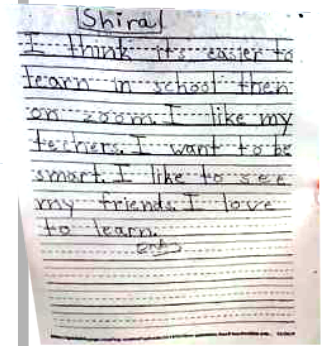 Shira
I think it's easier to
learn in school then
on zoom. I like my
techers. I want to be
smart. I like to see
my friends. I love
to learn.